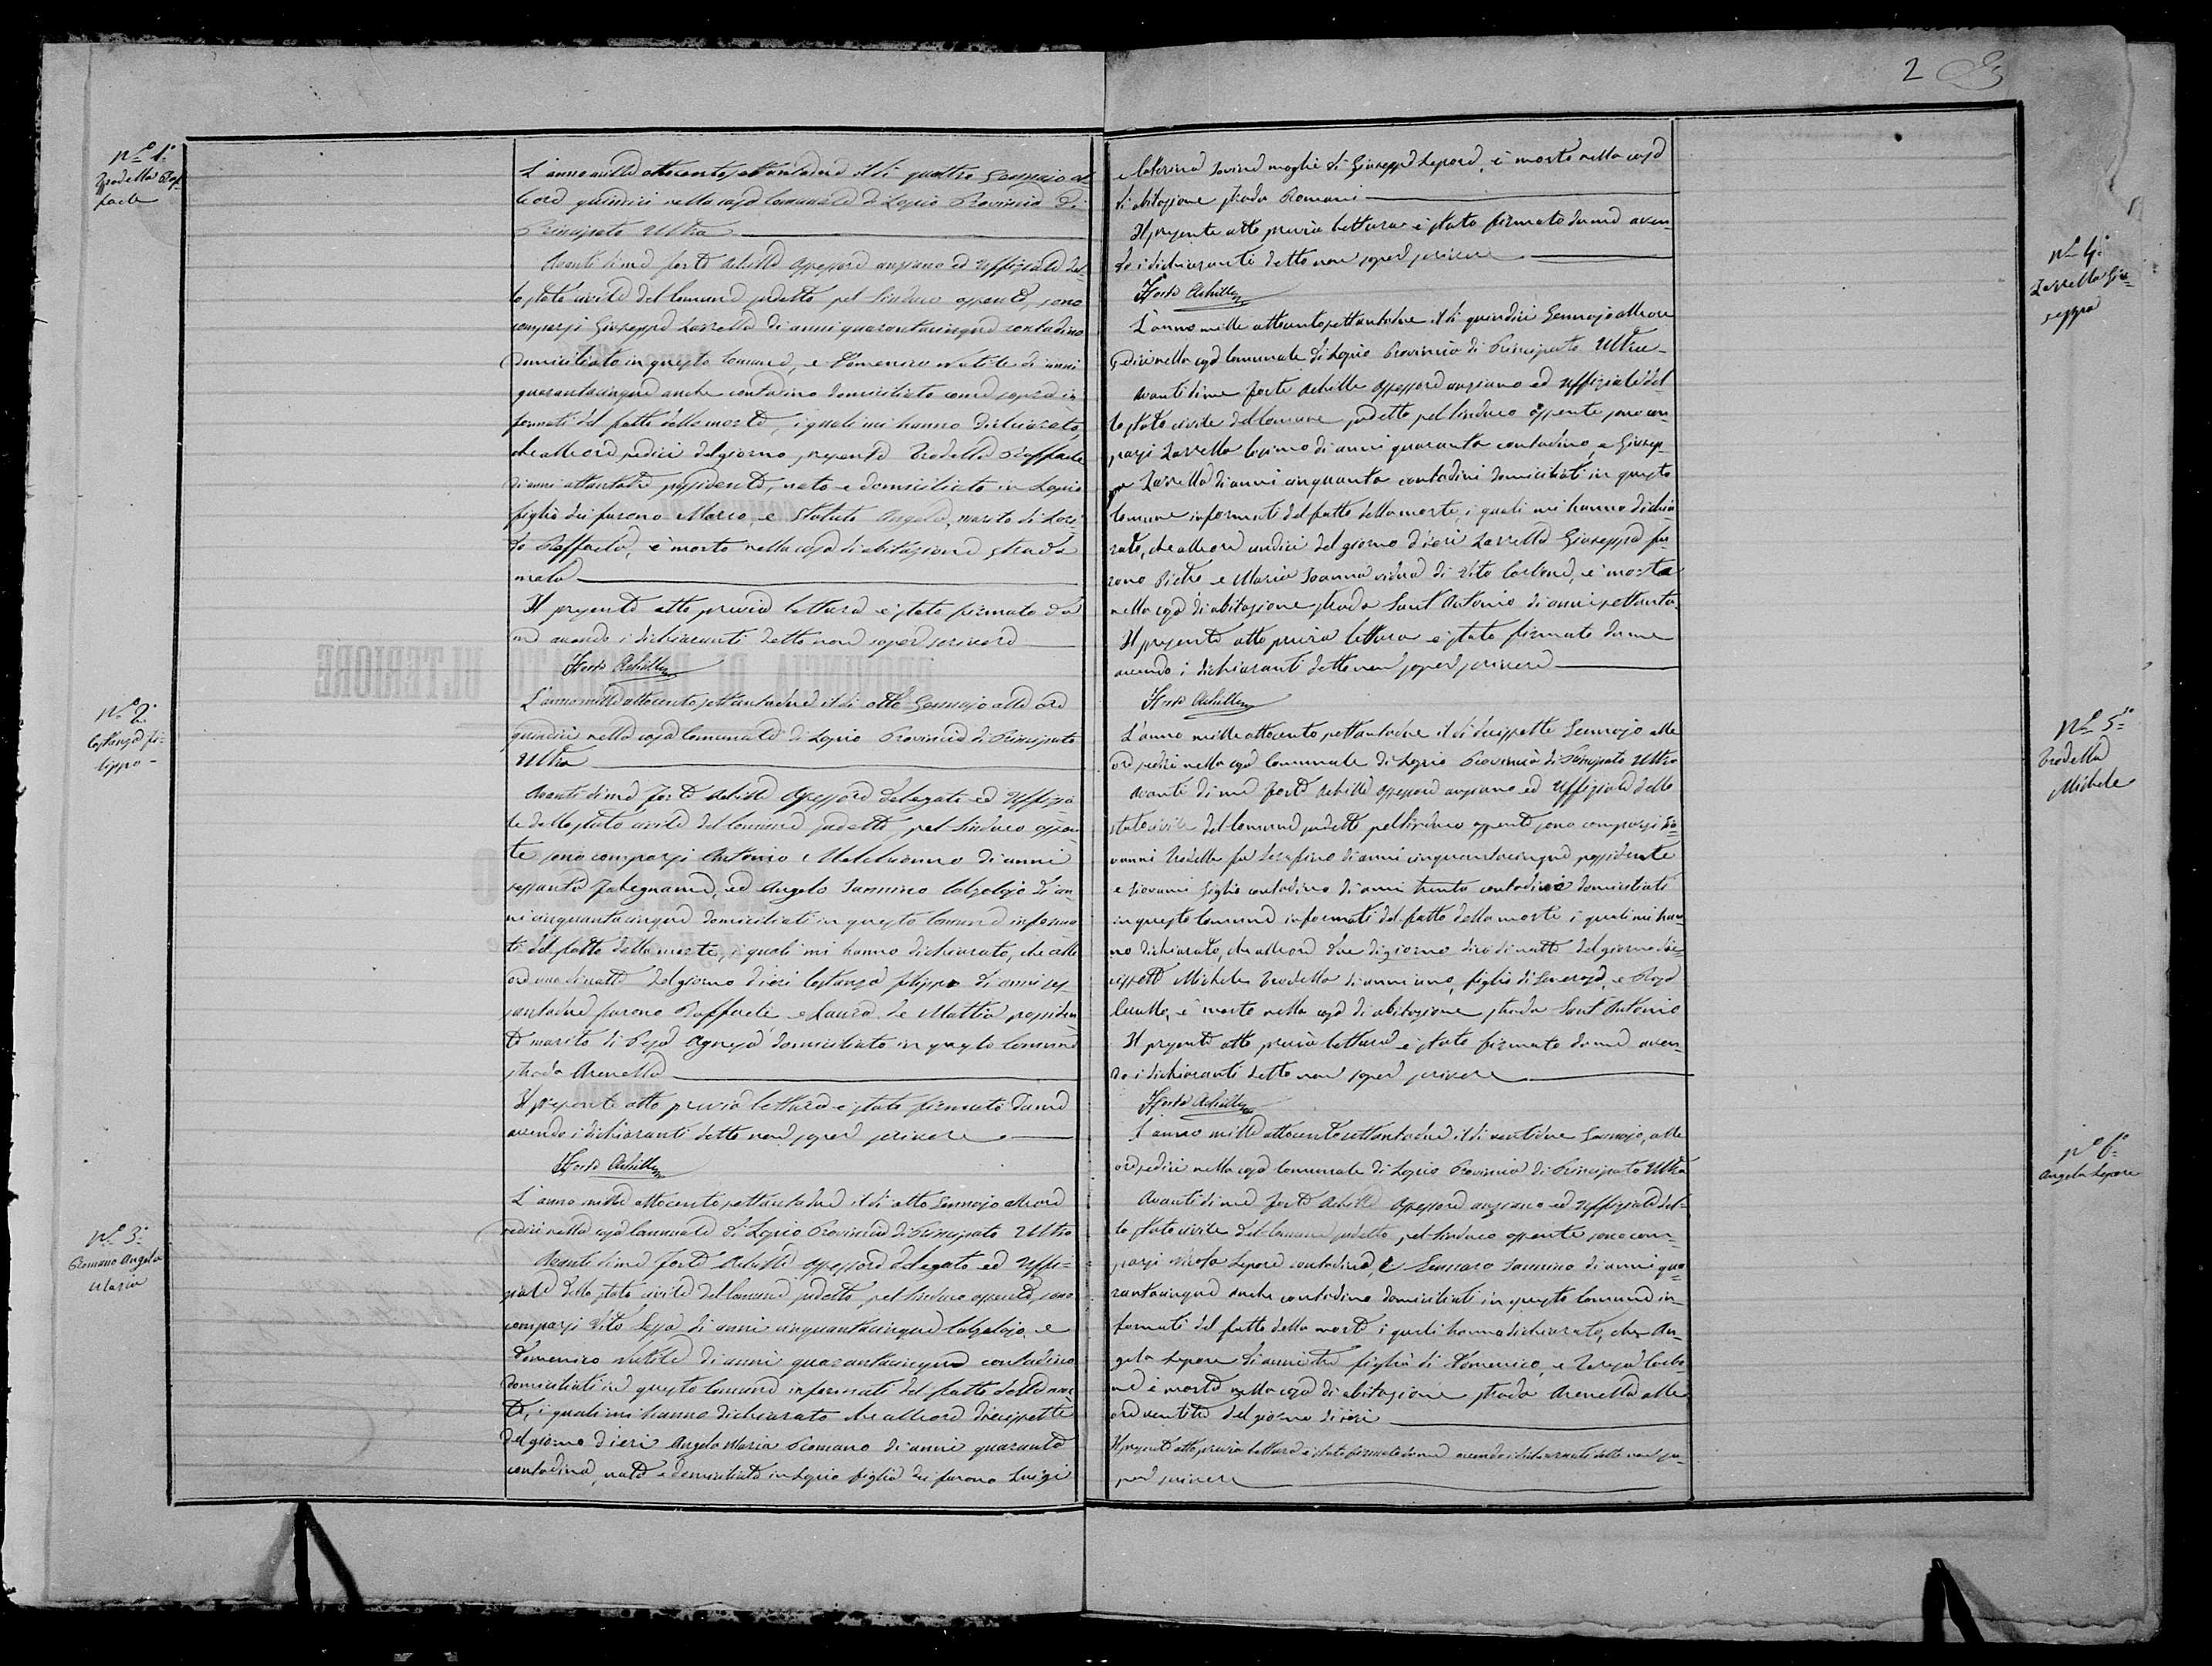 2
Nº 1º
Tradella Raf
faele
L'anno mille ottocento settantadue il dì quattro Gennajo al
le ore quindici nella casa Comunale di Lapio Provincia di
Principato Ultra
Avanti di me Forte Achille Assessore anziano ed Uffiziale del
lo stato civile del Comune sudetto pel Sindaco assente, sono
comparsi Giuseppe Zarrella di anni quarantacinque contadino
domiciliato in questo Comune, e Domenico Natile di anni
quarantacinque anche contadino domiciliato come sopra in
formati del fatto della morte, i quali mi hanno dichiarato,
che alle ore sedici del giorno presente Tradella Raffaele
di anni ottantatre possidente, nato e domiciliato in Lapio
figlio dei furono Marco, e Statuto Angela, marito di
Raffaela, è morto nella casa di abitazione strada
Il presente atto previa lettura è stato firmato da
me avendo i dichiaranti detto non saper scrivere
Forte Achille
Nº 2º
Costanza Fi=
lippo
L'anno mille ottocento settantadue il dì otto Gennajo alle ore
quindici nella casa Comunale di Lapio Provincia di Principato
Ultra
Avanti di me Forte Achille Assessore delegato ed Uffizia
le dello stato civile del Comune sudetto, pel Sindaco assen
te sono comparsi Antonio Melchionno di anni
sessanta falegname, ed Angelo Iannino Calzolajo di an
ni cinquantacinque domiciliati in questo Comune informa
ti del fatto della morte, i quali mi hanno dichiarato, che alle
ore una di notte del giorno di ieri Costanza Filippo di anni ses
santadue furono Raffaele e Laura de Mattia possiden
te marito di Pesa Agnesa domiciliato in questo Comune
strada Arenella
Il presente atto previa lettura è stato firmato da me
avendo i dichiaranti detto non saper scrivere
Forte Achille
Nº 3º
Romano Angela
Maria
L'anno mille ottocento settantadue il dì otto Gennajo alle ore
sedici nella casa Comunale di Lapio Provincia di Principato Ultra
Avanti di me Forte Achille Assessore delegato ed Uffi=
ziale dello stato civile del Comune sudetto, pel Sindaco assente, sono
comparsi Vito Sessa di anni cinquantacinque Calzolajo, e
Domenico Natile di anni quarantacinque contadino
domiciliati in questo Comune informati del fatto della mor
te, i quali mi hanno dichiarato che alle ore diecisette
del giorno di ieri Angela Maria Romano di anni quaranta
contadina, nata e domiciliata in Lapio figlia dei furono Luigi
e Caterina Iavine moglie di Giuseppe Lepore, è morta nella casa
di abitazione strada Romani
Il presente atto previa lettura è stato firmato da me aven
do i dichiaranti detto non saper scrivere
Forte Achille
Nº 4º
Zarrella Giu=
seppa
L'anno mille ottocento settantadue il dì quindici Gennajo alle ore
sedici nella casa Comunale di Lapio Provincia di Principato Ultra
Avanti di me Forte Achille Assessore anziano ed Uffiziale del
lo stato civile del Comune sudetto pel Sindaco assente sono com
parsi Zarrella Cosimo di anni quaranta contadino, e Giusep=
pe Zarrella di anni cinquanta contadini domiciliati in questo
Comune informati del fatto della morte, i quali mi hanno dichia
rato, che alle ore undici del giorno d'ieri Zarrella Giuseppa fu=
rono Pietro e Maria Ioanna vidua di Vito Carbone, è morta
nella casa di abitazione strada Sant'Antonio di anni settanta
Il presente atto previa lettura è stato firmato da me
avendo i dichiaranti detto non saper scrivere
Forte Achille
Nº 5º
Tradella
Michele
L'anno mille ottocento settantadue il dì diecisette Gennajo alle
ore sedici nella casa Comunale di Lapio Provincia di Principato Ultra
Avanti di me Forte Achille Assessore anziano ed Uffiziale dello
stato civile del Comune sudetto pel Sindaco assente sono comparsi Gio=
vanni Tradella fu Serafino di anni cinquantacinque possidente
e Giovanni Giglio contadino di anni trenta contadini domiciliati
in questo Comune informati del fatto della morte i quali mi han
no dichiarato, che alle ore due di giorno di notte del giorno die=
cisette Michele Tradella di anni uno, figlio di Generoso, e Rosa
è morto nella casa di abitazione strada Sant'Antonio
Il presente atto previa lettura è stato firmato da me aven=
do i dichiaranti detto non saper scrivere
Forte Achille
Nº 6º
Angela Lepore
L'anno mille ottocento settantadue il dì ventidue Gennajo, alle
ore sedici nella casa Comunale di Lapio Provincia di Principato Ultra
Avanti di me Forte Achille Assessore anziano ed Uffiziale del=
lo stato civile del Comune sudetto, pel Sindaco assente sono com=
parsi Nicola Lepore contadino, e Gennaro Iannino di anni qua=
rantacinque anche contadino domiciliati in questo Comune in=
formati del fatto della morte i quali hanno dichiarato, che An=
gela Lepore di anni tre figlia di Domenico, e Teresa Carbo
ne è morta nella casa di abitazione strada Arenella alle
ore ventitre del giorno di ieri
Il presente atto previa lettura è stato firmato da me avendo i dichiaranti detto non sa=
per scrivere